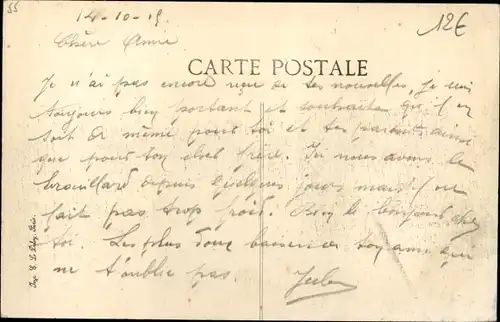 55
14-10-15
12€
Chère Amie
CARTE POSTALE
Je n'ai pas encore reçu de tes nouvelles, je suis
toujours bien portant et souhaite qu'il en
soit de même pour toi et tes parents ainsi
que pour ton cher frère. Ici nous avons le
brouillard depuis quelques jours mais il ne
fait pas trop froid. Bien le bonjour chez
toi. Les plus doux baisers de ton ami qui
ne t'oublie pas.
Jules
Imp.